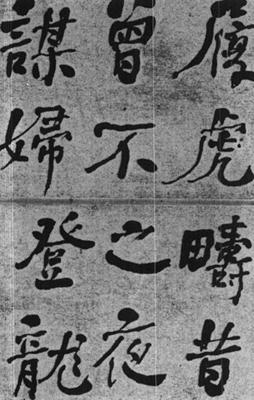 履虎疇昔
曾不之夜
謀婦登龍